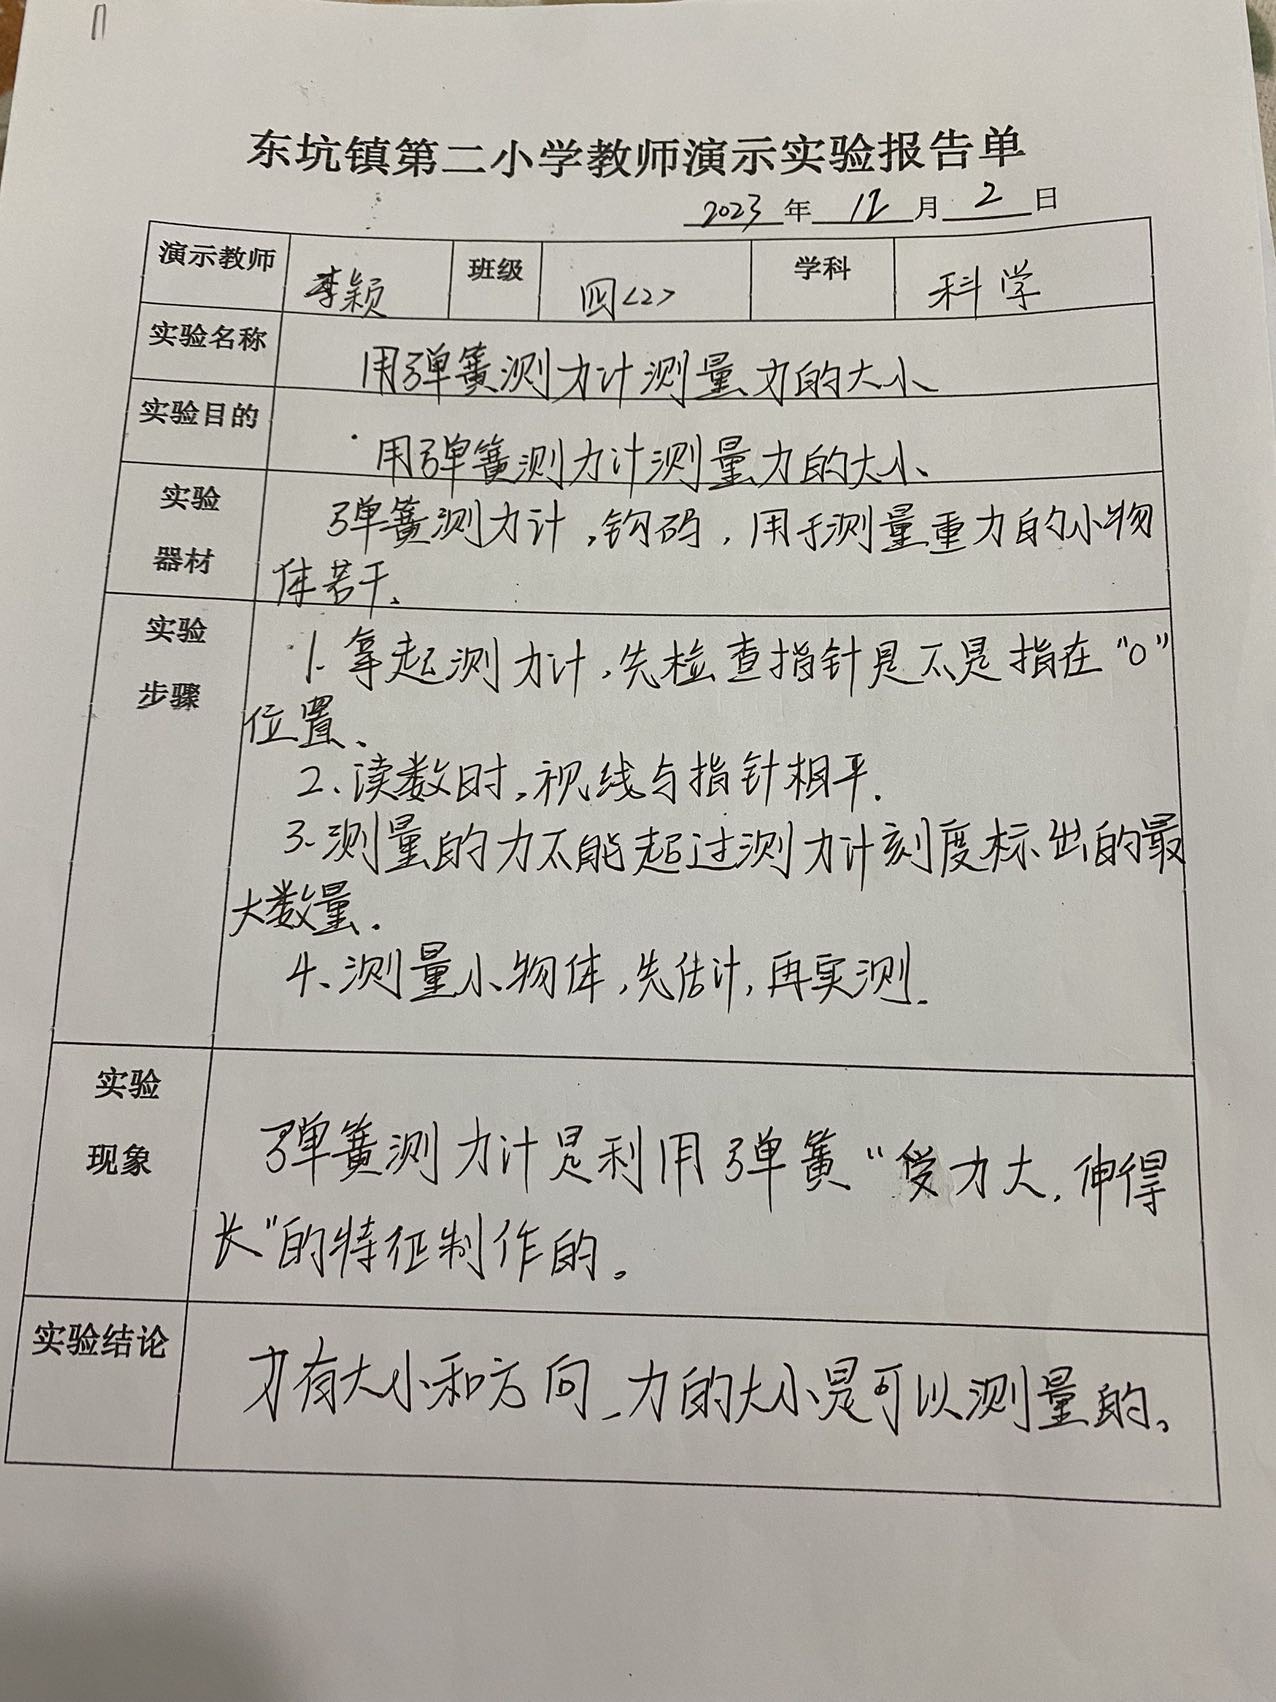 东坑镇第二小学教师演示实验报告单
2023年12月2日
演示教师 李颖 班级 四<2> 学科 科学
实验名称 用弹簧测力计测量力的大小
实验目的 用弹簧测力计测量力的大小、
实验器材 弹簧测力计,钩码,用于测量重力的小物
体若干、
实验步骤 1.拿起测力计,先检查指针是不是指在“0”
位置、
2、读数时,视线与指针相平.
3.测量的力不能超过测力计刻度标出的最
大数量.
4、测量小物体,先估计,再实测.
实验现象 弹簧测力计是利用弹簧“受力大,伸得
长”的特征制作的。
实验结论 力有大小和方向、力的大小是可以测量的。